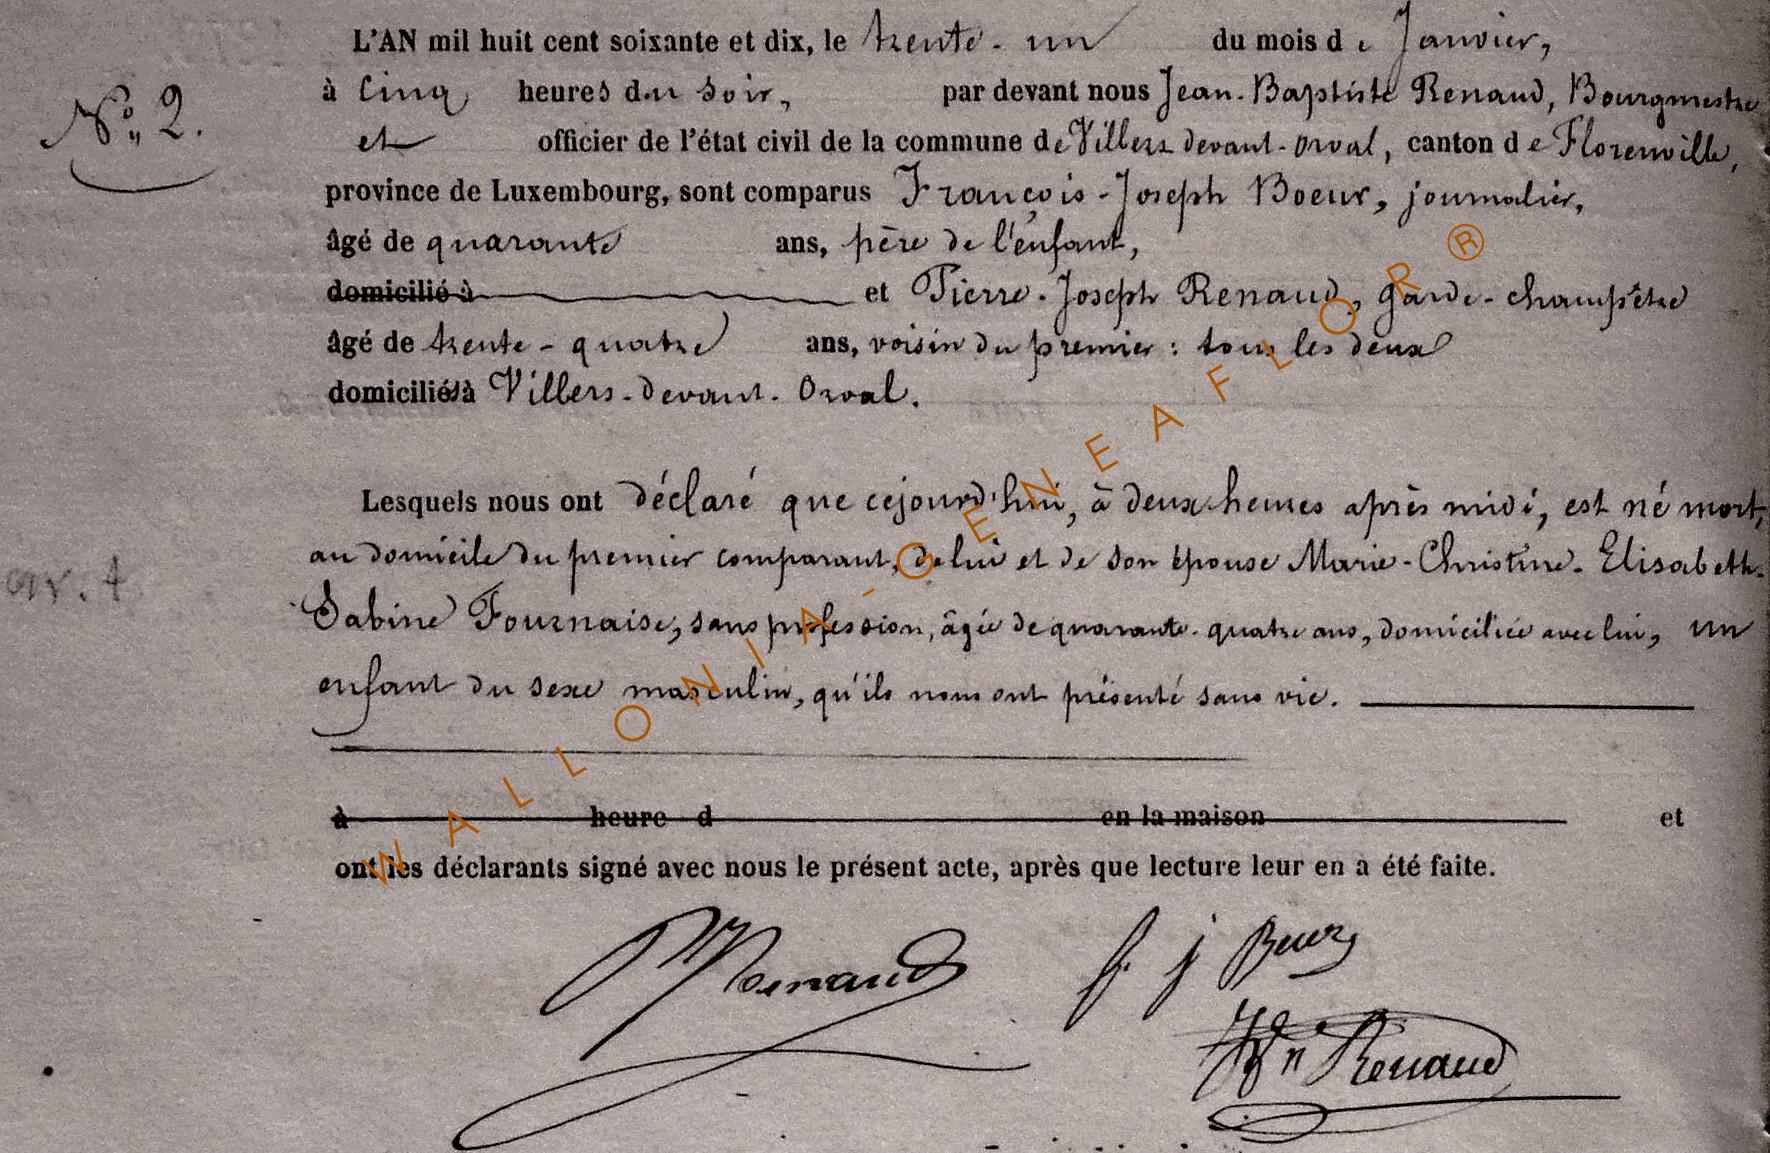 L'AN mil huit cent soixante et dix, le trente-un du mois de Janvier,
à cinq heures du soir, par devant nous Jean-Baptiste Renaud, Bourgmestre
N° 2.
et officier de l'état civil de la commune de Villers devant-Orval, canton de Florenville,
province de Luxembourg, sont comparus François-Joseph Boeur, journalier,
âgé de quarante ans, père de l'enfant,
domicilié à et Pierre-Joseph Renaud, garde-champêtre
âgé de trente-quatre ans, voisin du premier : tous les deux
domiciliés à Villers-devant-Orval.
Lesquels nous ont déclaré que cejourd'hui, à deux heures après midi, est né mort,
au domicile du premier comparant, de lui et de son épouse Marie-Christine-Elisabeth-
av. t
Sabine Fournaise, sans profession, âgée de quarante-quatre ans, domiciliée avec lui, un
enfant du sexe masculin, qu'ils nous ont présenté sans vie.
à heure d en la maison et
ont les déclarants signé avec nous le présent acte, après que lecture leur en a été faite.
Renaud f j Boeur
Renaud
WALLONIA-GENEAFLOR®